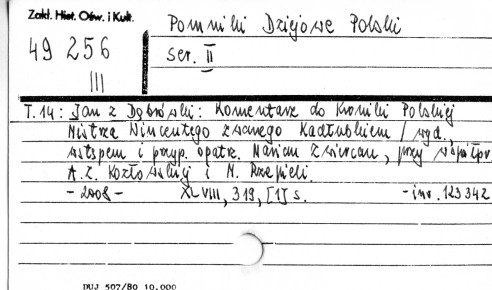 Zakł. Hist. Ośw. i Kult.
Pomniki Dziejowe Polski
49 256
ser. II
III
T. 14: Jan z Dąbrówki: Komentarz do Kroniki Polskiej
Mistrza Wincentego zwanego Kadłubkiem / wyd.,
wstępem i przyp. opatrz. Marian Zwiercan, przy współpr.
A. Z. Kozłowskiej i M. Rzepieli.
- 2008 - XLVIII, 319, [1] s. - inw. 123342
DUJ 507/80 10.000